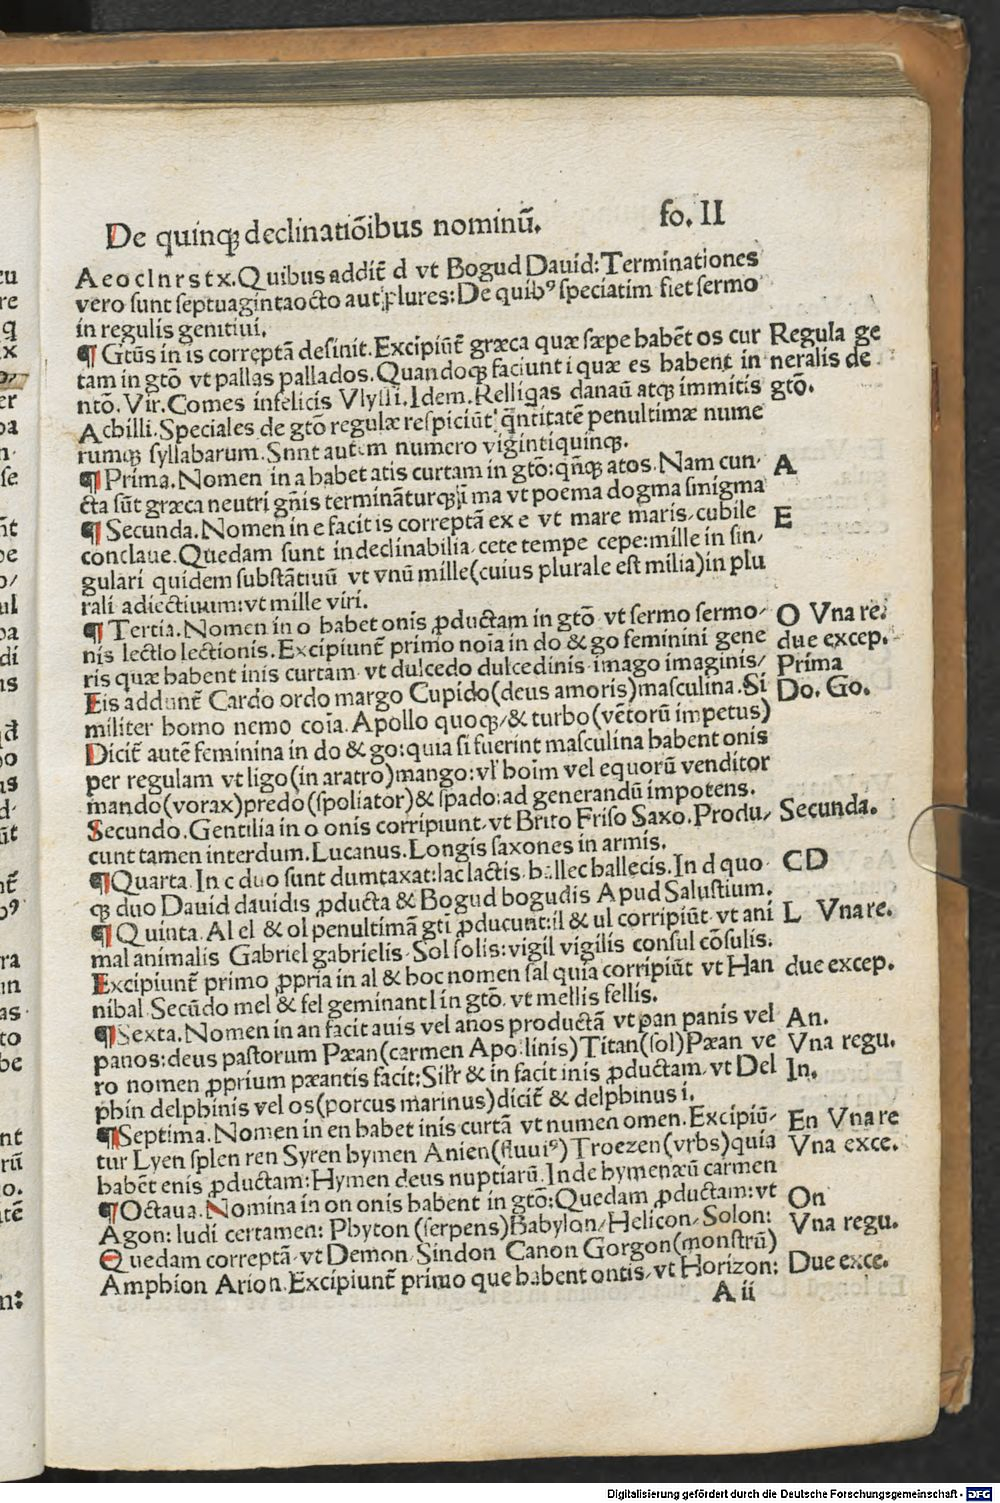 De quinqꝫ declinatiõibus nominũ. fo. II
A e o c l n r s t x. Quibus addit̃ d vt Bogud Dauid: Terminationes
vero sunt septuagintaocto aut plures: De quibꝰ speciatim fiet sermo
in regulis genitiui.
¶ Gtũs in is correptã desinit. Excipiũt̃ græca quæ sæpe habẽt os cur Regula ge
tam in gtõ vt pallas pallados. Quandoqꝫ faciunt i quæ es habent in neralis de
ntõ. Vir. Comes infelicis Vlyssi. Idem. Relliqas danaũ atqꝫ immitis gtõ.
Achilli. Speciales de gtõ regulæ respiciũt q̃ntitatẽ penultimæ nume
rumqꝫ syllabarum. Snnt autem numero vigintiquinqꝫ.
¶ Prima. Nomen in a habet atis curtam in gtõ: qñqꝫ atos. Nam cun- A
cta sũt græca neutri gñis terminãturqꝫ ĩ ma vt poema dogma smigma
¶ Secunda. Nomen in e facit is correptã ex e vt mare maris, cubile E
conclaue. Quedam sunt indeclinabilia, cete tempe cepe: mille in sin/
gulari quidem substãtiuũ vt vnũ mille (cuius plurale est milia) in plu
rali adiectiuum: vt mille viri.
¶ Tertia. Nomen in o habet onis ꝓductam in gtõ vt sermo sermo/ O Vna re.
nis lectio lectionis. Excipiunt̃ primo noĩa in do & go feminini gene due excep.
ris quæ habent inis curtam vt dulcedo dulcedinis imago imaginis/ Prima
Eis addunt̃ Cardo ordo margo Cupido (deus amoris) masculina. Si Do. Go.
militer homo nemo coĩa. Apollo quoqꝫ/ & turbo (vẽtorũ impetus)
Dicit̃ autẽ feminina in do & go: quia si fuerint masculina habent onis
per regulam vt ligo (in aratro) mango: vl' boũm vel equorũ venditor
mando (vorax) predo (spoliator) & spado: ad generandũ impotens.
Secundo. Gentilia in o onis corripiunt, vt Brito Friso Saxo. Produ/ Secunda.
cunt tamen interdum. Lucanus. Longis saxones in armis.
¶ Quarta In c duo sunt dumtaxat: lac lactis hallec hallecis. In d quo CD
qꝫ duo Dauid dauidis ꝓducta & Bogud bogudis Apud Salustium.
¶ Quinta Al el & ol penultimã gti ꝓducunt: il & ul corripiũt vt ani L Vna re.
mal animalis Gabriel gabrielis Sol solis: vigil vigilis consul cõsulis.
Excipiunt̃ primo ꝓpria in al & hoc nomen sal quia corripiũt vt Han due excep.
nibal Secũdo mel & fel geminant l in gtõ, vt mellis fellis.
¶ Sexta. Nomen in an facit anis vel anos productã vt pan panis vel An.
panos: deus pastorum Pæan (carmen Apollinis) Titan (sol) Pæan ve Vna regu.
ro nomen ꝓprium pæantis facit: Sil'r & in facit inis ꝓductam, vt Del In.
phin delphinis vel os (porcus marinus) dicit̃ & delphinus i.
¶ Septima. Nomen in en habet inis curtã vt numen omen. Excipiũ- En Vna re
tur Lyen splen ren Syren hymen Anien (fluuiꝰ) Troezen (vrbs) quia Vna exce.
habẽt enis ꝓductam: Hymen deus nuptiarũ. Inde hymenæũ carmen
¶ Octaua. Nomina in on onis habent in gtõ: Quedam ꝓductam: vt On
Agon: ludi certamen: Phyton (serpens) Babylon/ Helicon, Solon: Vna regu.
Quedam correptã, vt Demon, Sindon Canon Gorgon (monstrũ)
Amphion Arion. Excipiunt̃ primo que habent ontis, vt Horizon: Due exce.
A ii
Digitalisierung gefördert durch die Deutsche Forschungsgemeinschaft - DFG